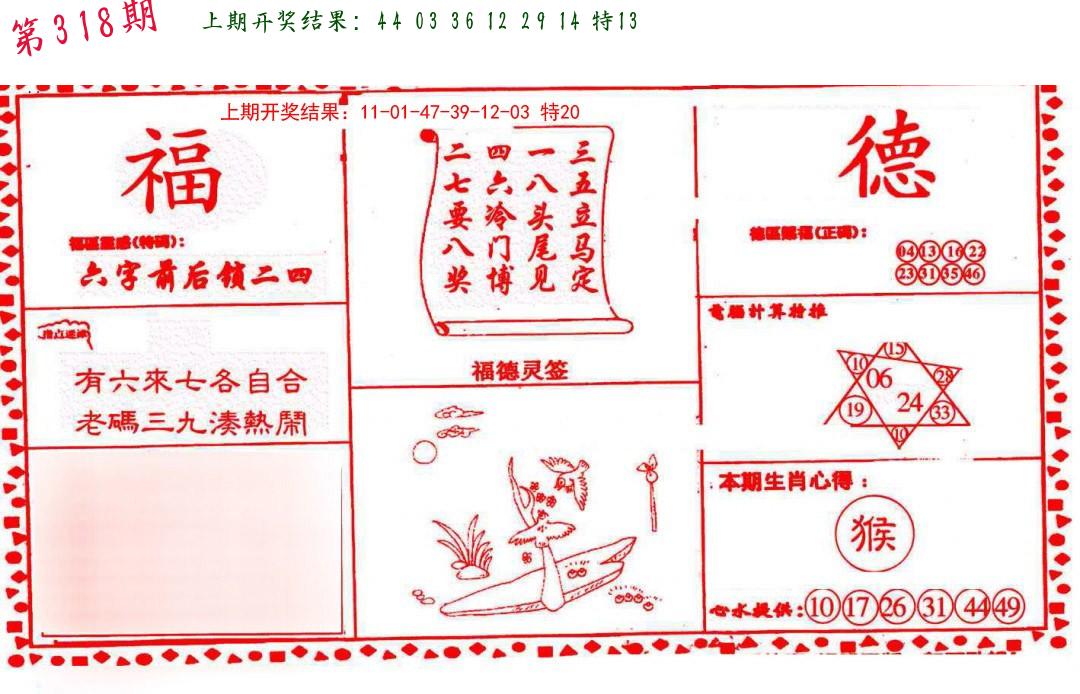 第318期
上期开奖结果：44 03 36 12 29 14 特13
上期开奖结果：11-01-47-39-12-03 特20
福
福區靈感(特碼)：
六字前后锁二四
有六來七各自合
老碼三九湊熱鬧
三五立马定
一八头尾见
四六冷门博
二七要八奖
福德灵签
德
德區賜福(正碼)：
04 13 16 22
23 31 35 46
電腦計算特推
15
10
06
28
19
24
33
10
本期生肖心得：
猴
心水提供：10 17 26 31 44 49